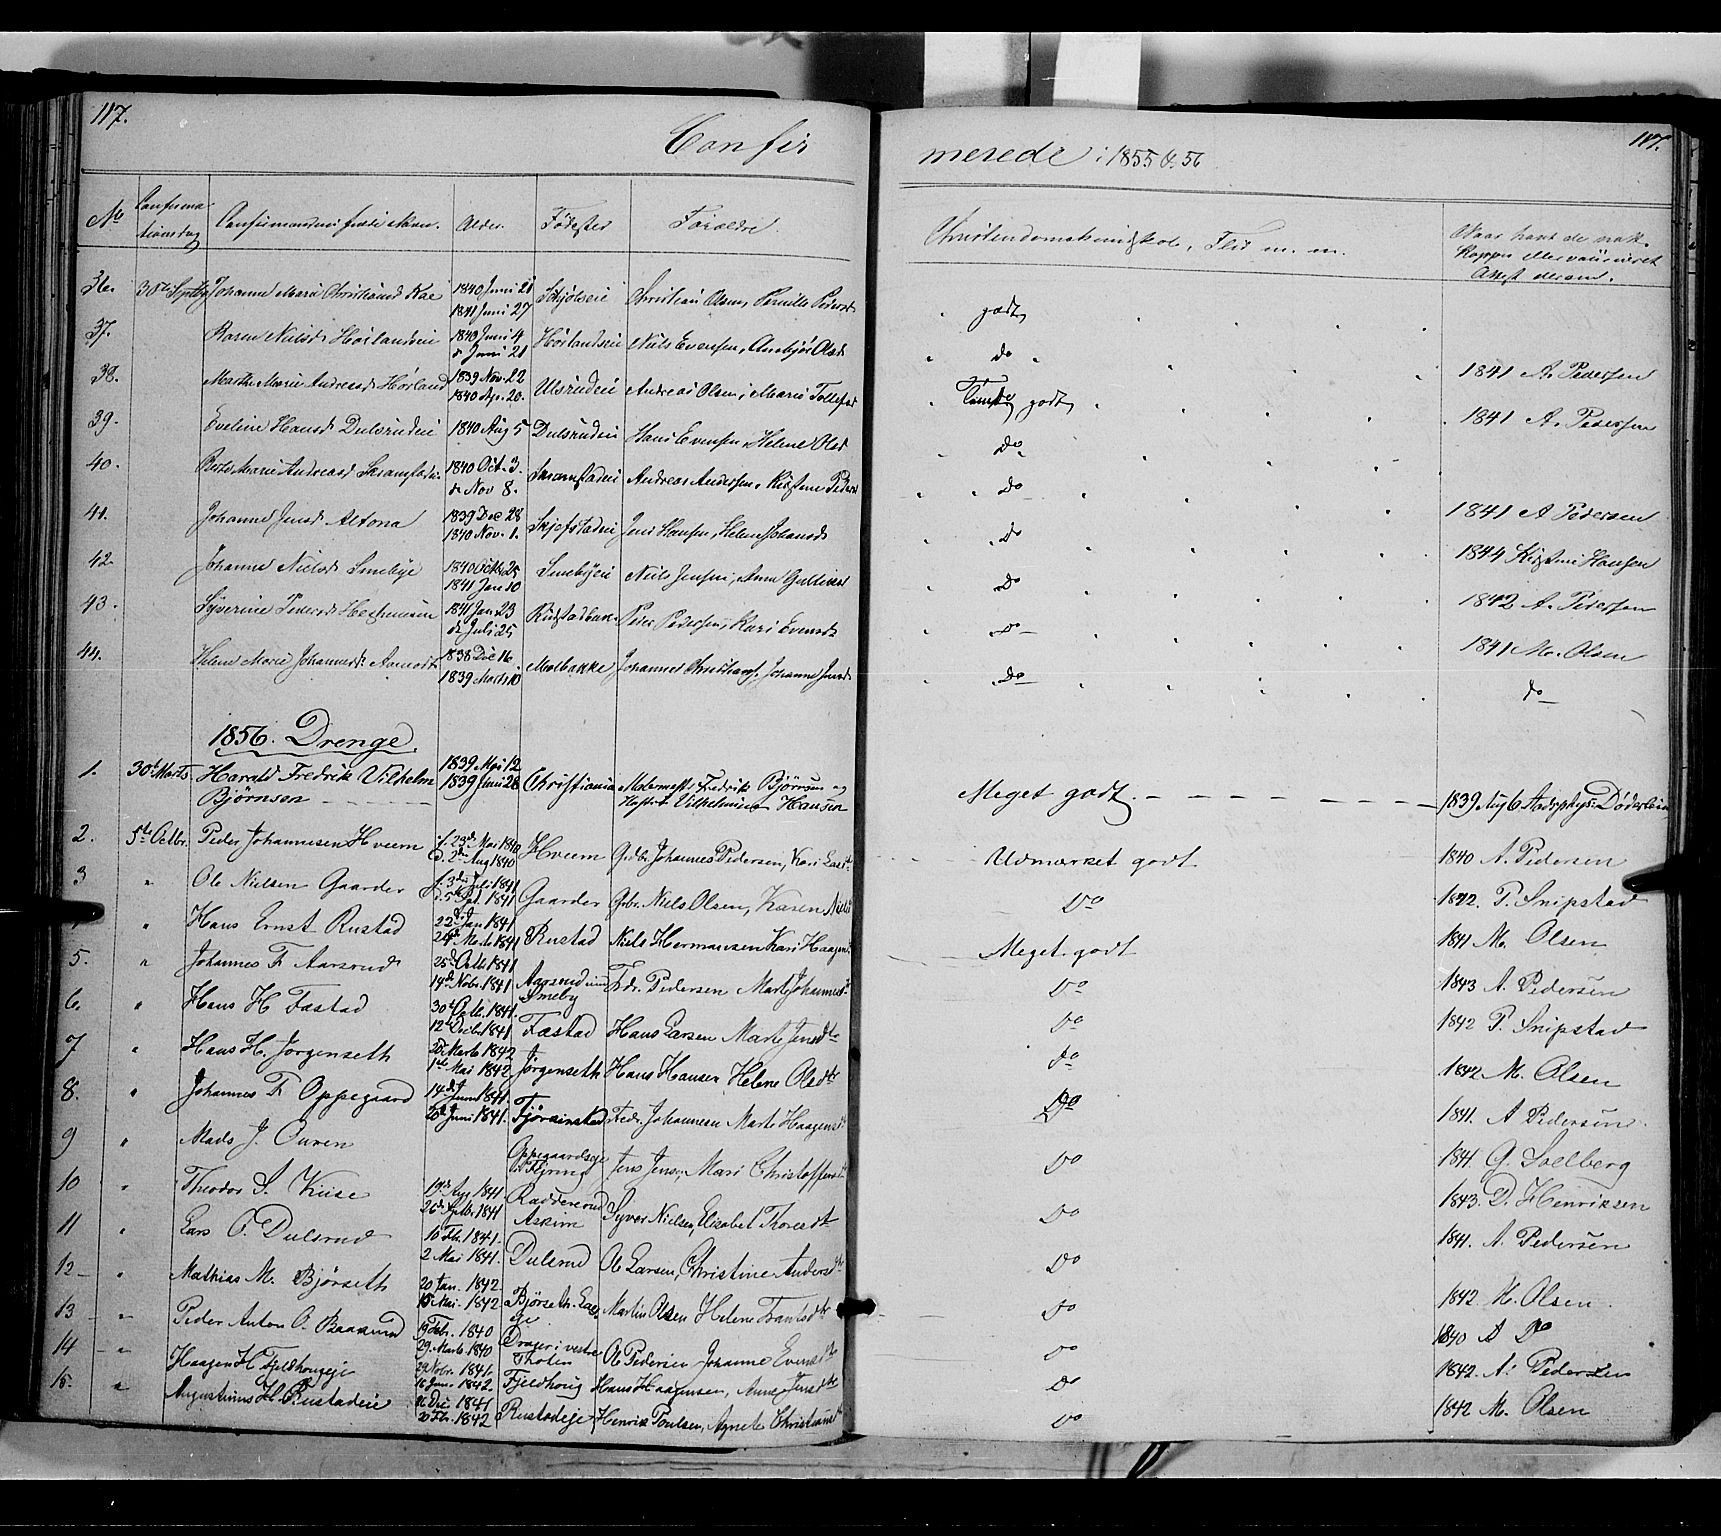 117.
117.
Confir
merede i 1855 & 56
No
Confirma-
tionsdag
Confirmandens fulde Navn.
Alder.
Fødested
Forældre.
Christendomskundskab, Flid m. m.
Naar havt de nat.
Kopper eller vaccineret
Attest derom.
36. 30te Septbr Johanne Marie Christiansd 1840 Juni 21 Christian Olsen, Pernille Pedersd godt
1841 Juni 27
37. Karen Nielsd Høilandseie 1840 Juni 4 Høilandseie Niels Evensen, Anebjør Olsd do
d. Juni 21
38. Marthe Marie Andreasd Høiland 1839 Nov. 22 Ulsrudeie Andreas Olsen, Marie Tollefsd godt 1841 A. Pedersen
1840 Apr. 20.
39. Eveline Hansd Dulsrudeie 1840 Aug 5 Dulsrudeie Hans Evensen, Helene Olsd do 1841 A. Pedersen
40. Berte Marie Andreasd 1840 Oct. 3. Andreas Andersen, Kirstine Pedersd do
d. Nov 8.
41. Johanne Jensd Altona 1839 Dec 28 Skjefstadeie Jens Hansen, Helene Johansd do 1841 A Pedersen
1840 Nov. 1.
42. Johanne Nielsd Smebye 1840 Octbr 25 Smebyeie Niels Jensen, Anne Gulliksd do 1844 Kirstine Hansen
1841 Jan 10
43. Syverine Pedersd 1841 Jan 23 Peder Pedersen, Kari Evensd do 1842 A. Pedersen
d. Juli 25
44. Helene Marie Johannesd 1838 Dec 16. Moelbakke Johannes Christians, Johanne Jensd do 1841 M. Olsen
1839 Marts 10
do
1856. Drenge.
1. 30te Marts Harald Fredrik Vilhelm 1839 Mai 12 Christiania Fredrik Bjørnsen og Meget godt. 1839 Aug 6. Døderlein
Bjørnsen 1839 Juni 28 Hustru Vilhelmine Hansen
2. 5te Octbr. Peder Johannesen Hveem f. 23de Mai 1840 Hveem Gdbr. Johannes Pedersen, Kari Larsdt Udmærket godt 1840 A. Pedersen
d. 2den Aug 1840
3 " Ole Nielsen Gaarder f. 3die Juli 1841 Gaarder Gbr. Niels Olsen, Karen Nielsd Do 1842 P. Snipstad
d. 5te Sept. 1841
" Hans Ernst Rustad 22de Jan 1841 Rustad Niels Hermansen Kari Haagens Meget godt 1841 M. Olsen
24de Marts 1841
5. " Johannes F. Aasrud 25de Octb 1841 Aasrud Fdr. Pedersen Marte Johannesdt Do 1843 A. Pedersen
14de Nobr. 1841 Smeby
6. " Hans H. Fæstad 30te Octb. 1841. Fæstad Hans Larsen Marte Jensdtr Do 1842 P. Snipstad
12te Decbr 1841
7 " Hans H. Jørgenseth 20de Marts 1842 Jørgenseth Hans Hansen Helene Olsdtr do 1842 M. Olsen
1ste Mai 1842
8. " Johannes F. Oppegaard 14de Juni 1841. Fredr. Johannesen Marte Haagensdt Do 1841. A Pedersen
20de Juni 1841.
9 " Mads J. Ouren Oppegaardseje Jens Jensen, Mari Christoffersdt Do 1841. G. Soelberg
10 " Theodor S. Kiise 19de Aug 1841 Syver Nielsen, Elisabet Thoresdt Do 1843. D. Henriksen
26de Septb. 1841
11 " Lars O. Dulsrud 10 Fbr. 1841. Dulsrud Ole Larsen, Christine Andersdtr Do 1841. A. Pedersen
2 Mai 1841.
12 " Mathias M. Bjørseth 20 Jan. 1842 Bjørseth Martin Olsen Helene Frantsdtr Do 1842 M. Olsen.
15 Mai. 1842
13 " Peder Anton O. Baasrud 19 Febr. 1840 Drager i vestre Ole Pedersen Johanne Evensdtr Do 1840 A Do
29. Marts 1840 Thoten
14 " Haagen H. Fjeldhougeje 29 Nobr. 1841. Fjeldhoug Hans Haagensen, Anne Jensdtr Do 1842. A. Pedersen
16 Jan. 1842.
15. " Augustinus H. Rustadeie 16 Dec 1841 Rustadeje Henrik Poulsen, Agnete Christiansdtr Do 1842 M. Olsen
20 Fbr. 1842